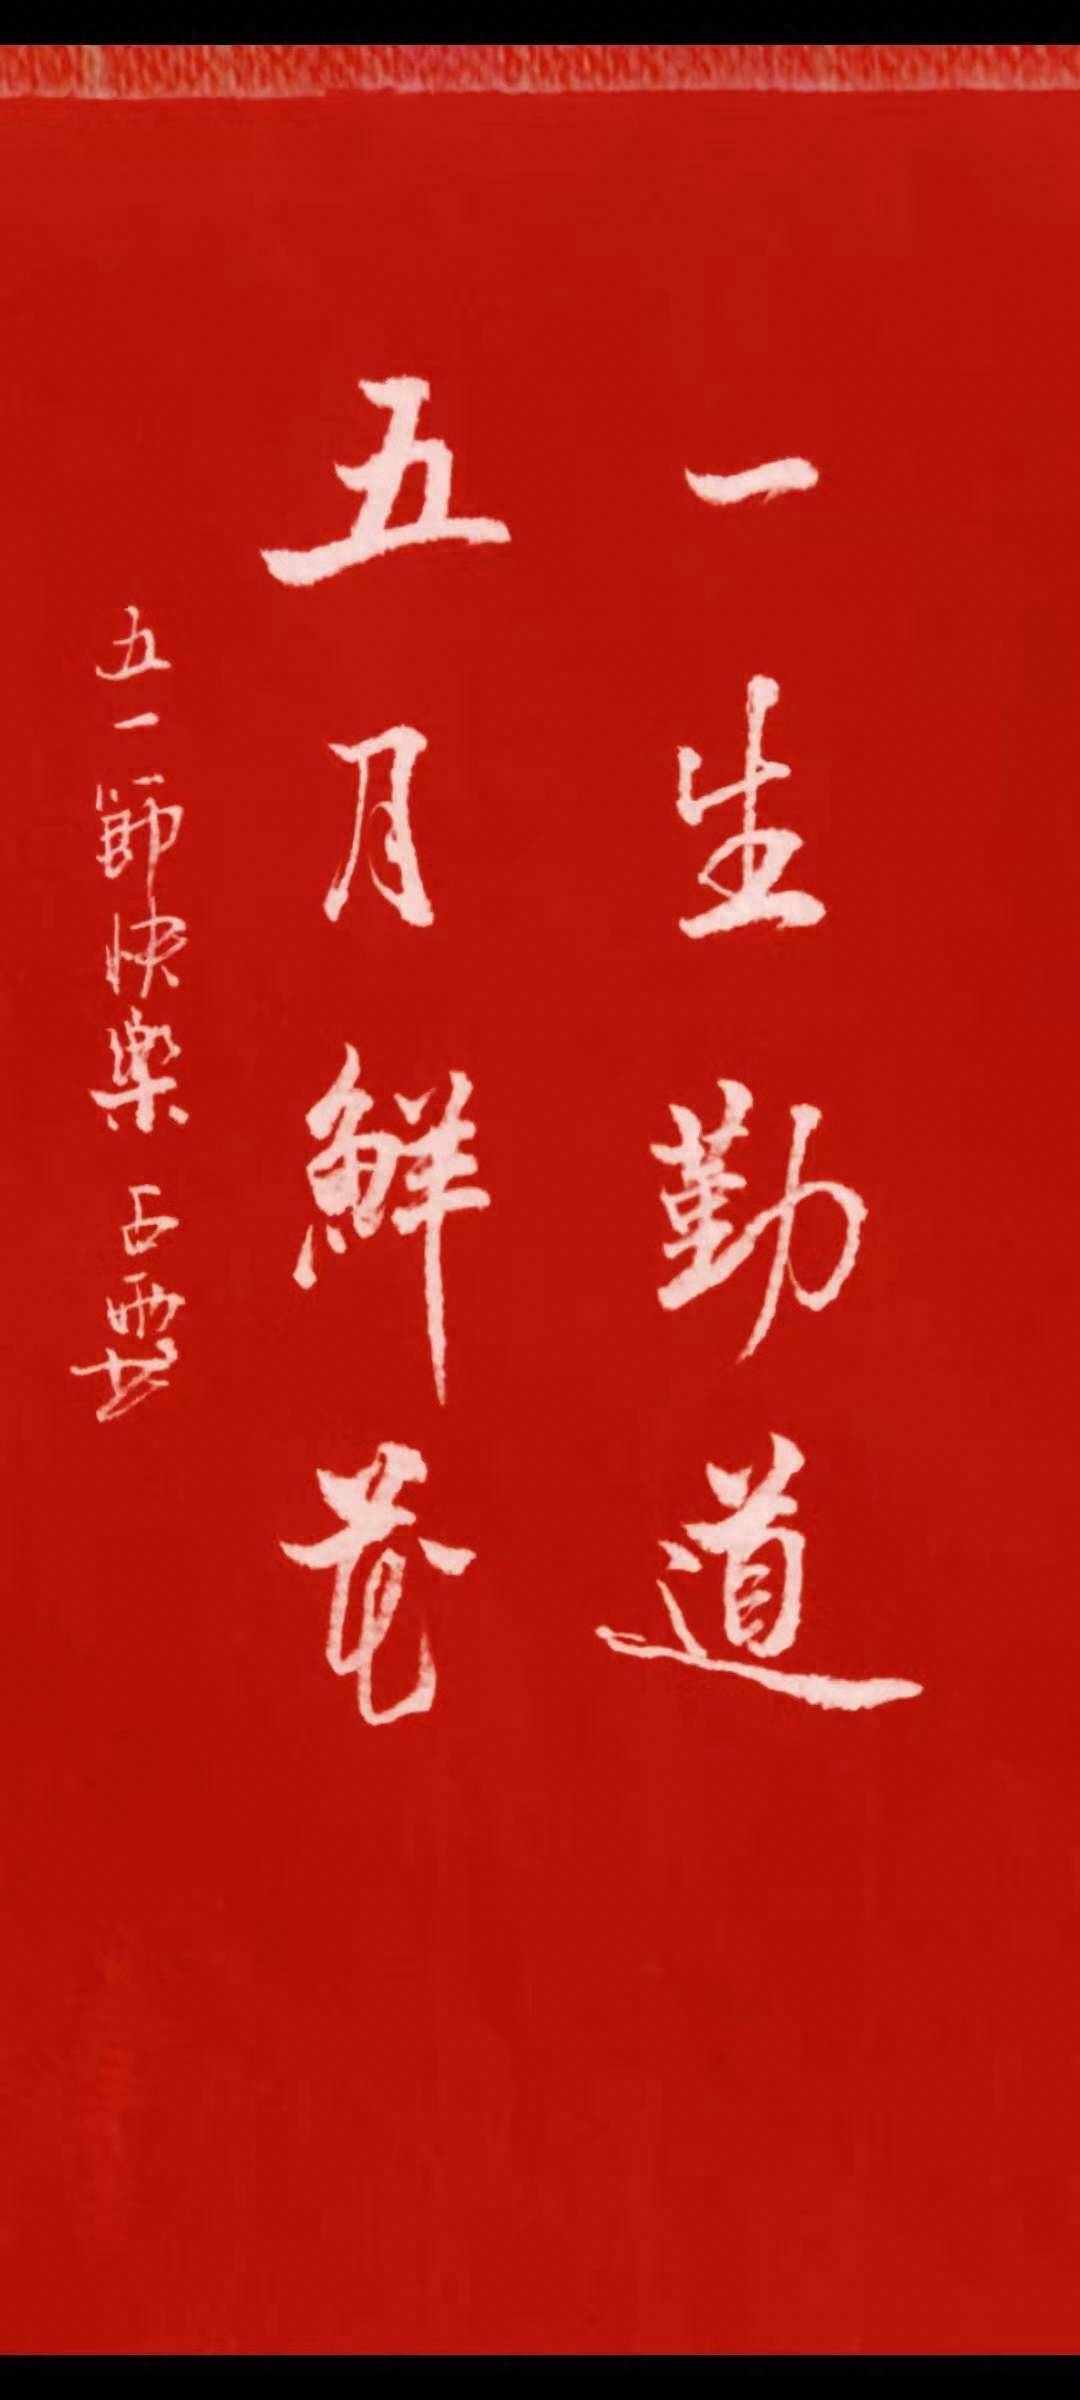 一生勤道
五月鮮花
五一節快樂 石雲